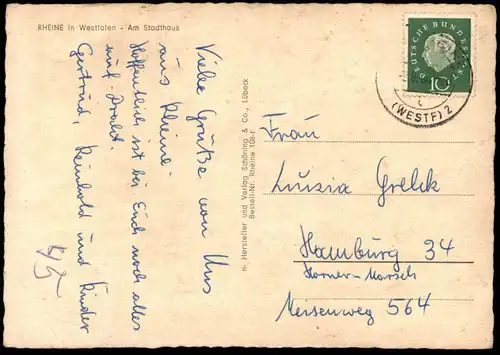 RHEINE in Westfalen - Am Stadthaus
Viele Grüße von Uns
aus Rheine.
Hoffentlich ist bei Euch noch alles
auf Draht.
Gertrud Reinhold und Kinder
4/5
n· Hersteller und Verlag Schöning & Co., Lübeck
Bestell-Nr. Rheine
DEUTSCHE BUNDESPOST
10
(WESTF) 2
Frau
Luzia Grelck
Hamburg 34
Horner-Marsch
Meisenweg 564